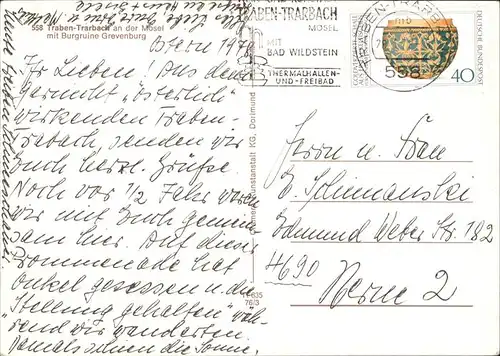 558 Traben-Trarbach an der Mosel
mit Burgruine Grevenburg
Ostern 1978
Ihr Lieben! Aus dem
gar nicht „österlich"
wirkenden Traben-
Trarbach, senden wir
Euch herzl. Grüße.
Noch vor 1/2 Jahr waren
wir mit Euch gemein-
sam hier. Auf dieser
Promenade hat
Onkel gesessen u. die
„Stellung gehalten" wäh-
rend wir wanderten.
Damals schien die Sonne,
Alles Liebe Gute
TRABEN-TRARBACH
MOSEL
MIT
BAD WILDSTEIN
THERMALHALLEN-
UND-FREIBAD
TRABEN-TRARBACH
558
DEUTSCHE BUNDESPOST
40
Kunstanstalt KG, Dortmund
76/3
Herrn u. Frau
E. Schimanski
Edmund Weber Str. 182
4690
Herne 2